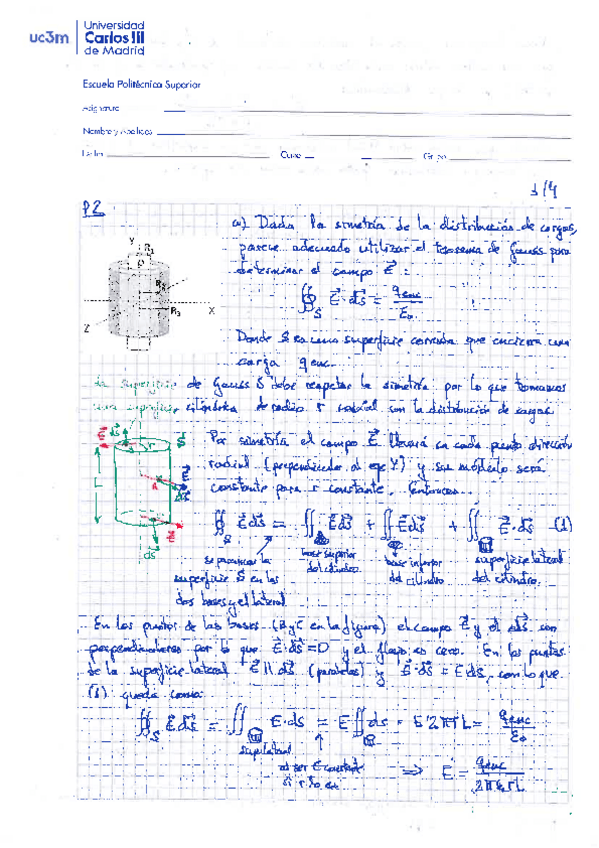 uc3m
Universidad
Carlos III
de Madrid
Escuela Politécnica Superior
Asignatura
Nombre y Apellidos
Fecha
Curso
Grupo
1/4
P2
a) Dada la simetría de la distribución de cargas,
parece adecuado utilizar el teorema de Gauss para
determinar el campo E⃗ :
∯_S E⃗·ds⃗ = q_enc/ε₀
Donde S es una superficie cerrada que encierra una
carga q enc.
Y
R₁
R₂
R₃
X
Z
La superficie de Gauss S debe respetar la simetría por lo que tomamos
una superficie cilíndrica de radio r coaxial con la distribución de cargas
Por simetría el campo E⃗ llevará en cada punto dirección
radial (perpendicular al eje Y) y su módulo será
constante para r constante. Entonces..
ds⃗
E⃗
r
S
L
A
E⃗
ds⃗
E⃗
ds⃗
∯_S E⃗ds⃗ = ∬ E⃗ds⃗ + ∬ E⃗ds⃗ + ∬ E⃗·ds⃗ (1)
separamos la
superficie S en las
dos bases y el lateral
base superior
del cilindro.
base inferior
del cilindro
superficie lateral
del cilindro.
En los puntos de las bases (B y C en la figura) el campo E⃗ y el ds⃗ son
perpendiculares por lo que E⃗·ds⃗=0 y el flujo es cero. En los puntos
de la superficie lateral E⃗ ∥ ds⃗ (paralelos) y E⃗·ds⃗ = E ds, con lo que
(1) queda como:
∯_S E⃗ds⃗ = ∬ E·ds = E∬ds = E 2πrL = q_enc/ε₀
sup lateral
al ser E constante
si r lo es
⇒ E = q_enc/2πε₀rL